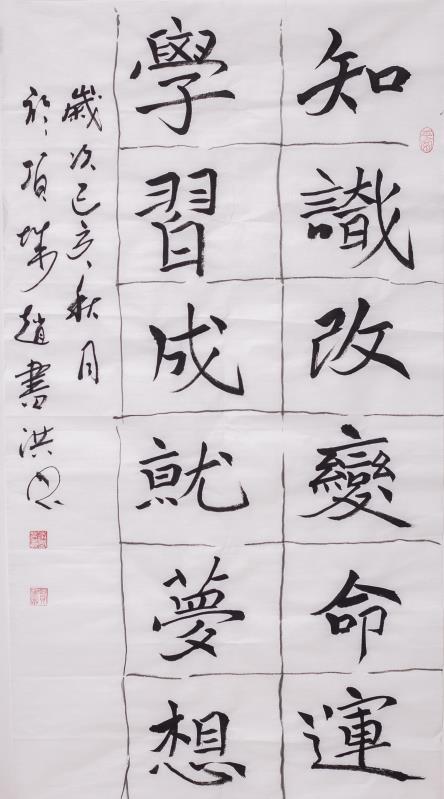 知識改變命運
學習成就夢想
歲次己亥秋月
於項城趙書洪